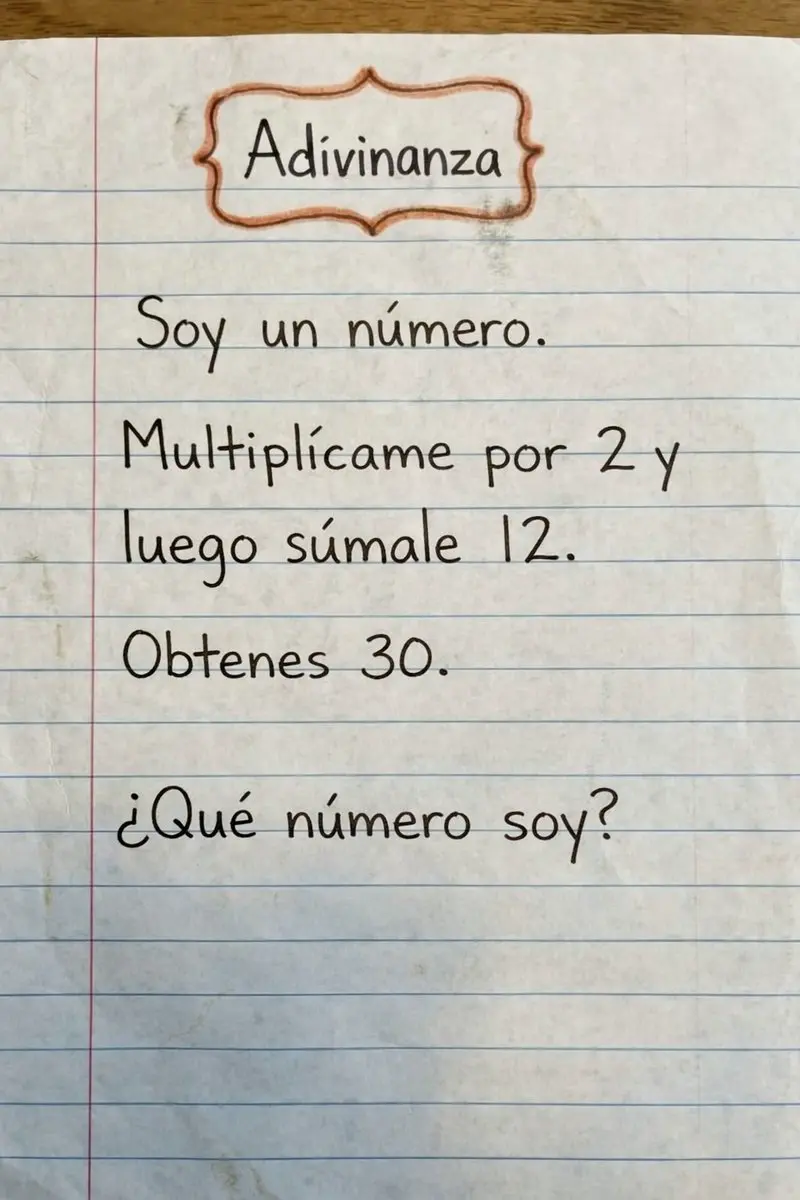 Adivinanza
Soy un número.
Multiplícame por 2 y
luego súmale 12.
Obtenes 30.
¿Qué número soy?